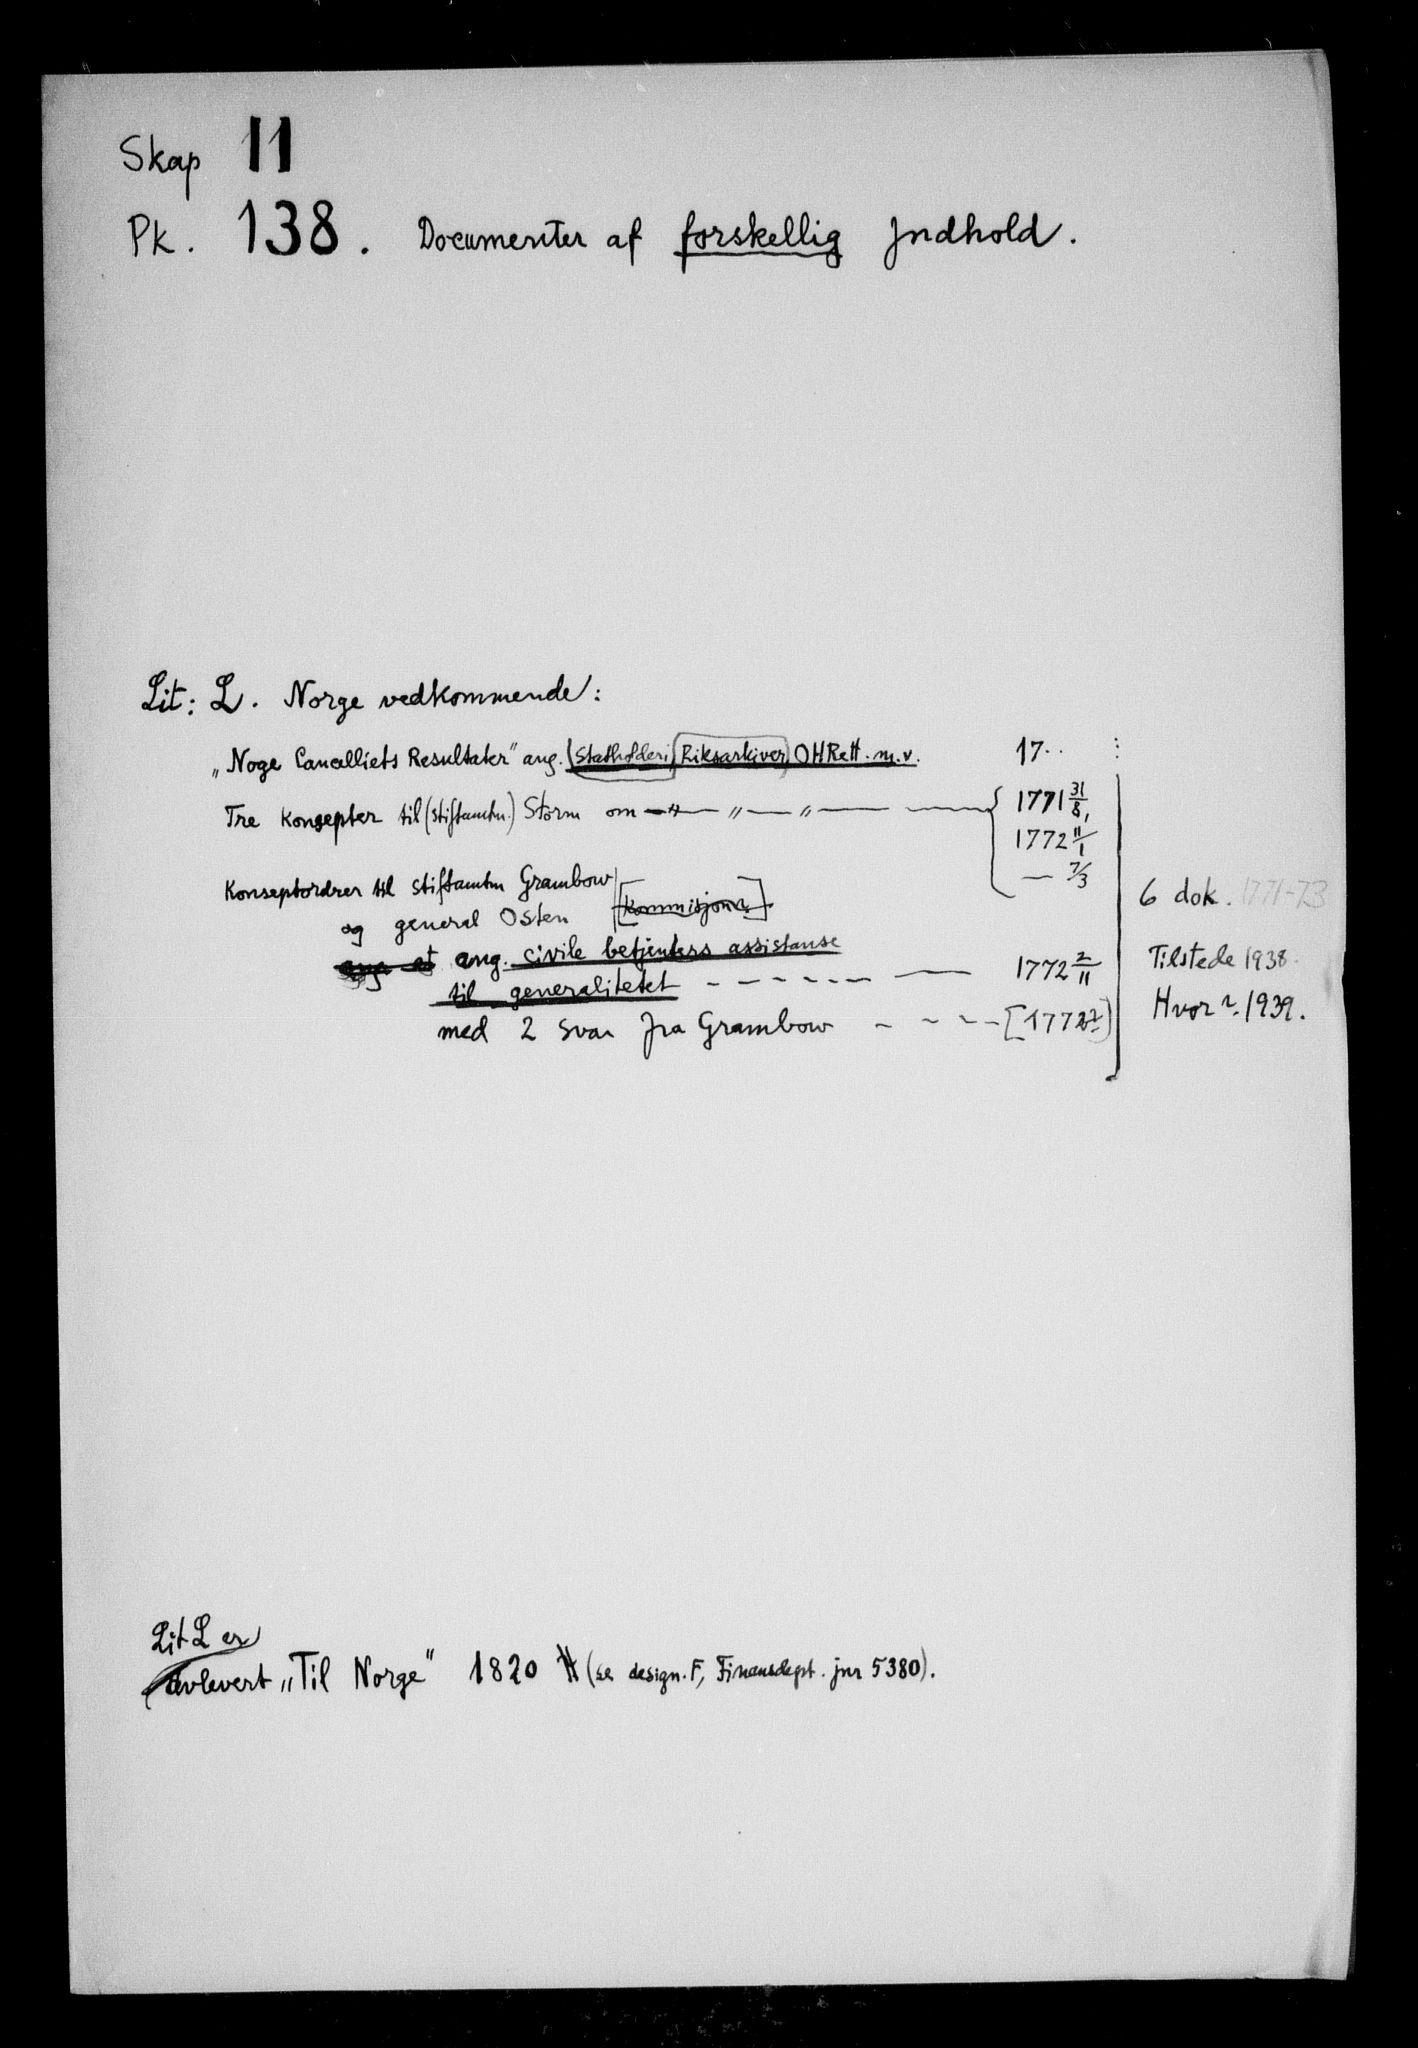 Skap 11
Pk. 138. Documenter af forskellig Jndhold.
Lit: L. Norge vedkommende:
„Noge Cancelliets Resultater" ang. (Statholderi, Riksarkiver) OHRett. m.v. 17..
Tre konsepter til (stiftamtm.) Storm om — „ — „ — „ — 1771 31/8,
1772 11/1
— 7/3
Konseptordrer til stiftamtm Grambow
og general Osten [Kommisjonen]
ang. civile betjenters assistanse
til generalitetet - - - - - - — 1772 2/11
med 2 svar fra Grambow - - - - [1772?]
6 dok. 1771-73
Tilstede 1938.
Hvor ? 1939.
Lit L er
avlevert „Til Norge" 1820 (se design. F, Finansdept. jnr 5380).